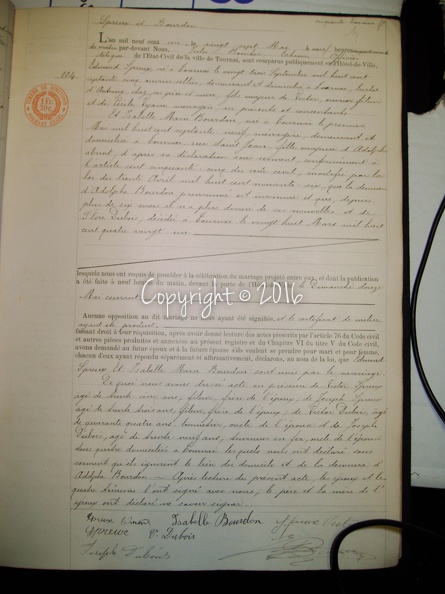 Spreux et Bourdon
L'an mil neuf cent un le vingt sept Mai, à neuf heures
du matin par-devant Nous, Jules Echevin Officier
délégué de l'État-Civil de la ville de Tournai, sont comparus publiquement en l'Hôtel-de-Ville,
174.
Edmond Spreux, né à Tournai le vingt trois Septembre mil huit cent
septante cinq, domicilié à Tournai,
père et mère, fils majeur de Victor, ouvrier fileur
et de ménagère, ci présents et consentants.
Et Isabelle Marie Bourdon, née à Tournai le premier
Mai mil huit cent septante neuf, ménagère, demeurant et
domiciliée à Tournai rue Saint Jean, fille majeure d'Adolphe
absent, d'après sa déclaration sous serment, conformément à
l'article cent cinquante cinq du code civil, modifié par la
loi du trente Avril mil huit cent nonante six, que la demeure
d'Adolphe Bourdon prénommé est inconnue et que, depuis
plus de six mois il n'a plus donné de ses nouvelles et de
Flore Dubois, décédée à Tournai le vingt huit Mars mil huit
cent quatre vingt un
lesquels nous ont requis de procéder à la célébration du mariage projeté entre eux, et dont la publication
a été faite à neuf heures du matin, devant la porte de l'Hôtel le Dimanche douze
Mai courant
Copyright © 2016
Aucune opposition au dit mariage ne nous ayant été signifiée, et le certificat de milice
ayant été produit,
faisant droit à leur réquisition, après avoir donné lecture des actes prescrits par l'article 76 du Code civil
et autres pièces produites et annexées au présent registre et du Chapitre VI du titre V du Code civil,
avons demandé au futur époux et à la future épouse s'ils veulent se prendre pour mari et pour femme,
chacun d'eux ayant répondu séparément et affirmativement, déclarons, au nom de la loi, que Edmond
Spreux Et Isabelle Marie Bourdon sont unis par le mariage.
De quoi nous avons dressé acte en présence de Victor Spreux
âgé de trente cinq ans, fileur, frère de l'époux; de Joseph Spreux
âgé de trente huit ans, fileur, frère de l'époux; de Victor Dubois, âgé
de quarante quatre ans, tonnelier, oncle de l'épouse et de Joseph
Dubois, âgé de trente neuf ans, en fer, oncle de l'épouse
tous quatre domiciliés à Tournai lesquels nous ont déclaré sous
serment qu'ils ignorent le lieu du domicile et de la demeure d'
Adolphe Bourdon — Après lecture du présent acte, les époux et les
quatre témoins l'ont signé avec nous, le père et la mère de l'
époux ont déclaré ne savoir signer.
Spreux Edmond Isabelle Bourdon Spreux Victor
Spreux V. Dubois
Joseph Dubois